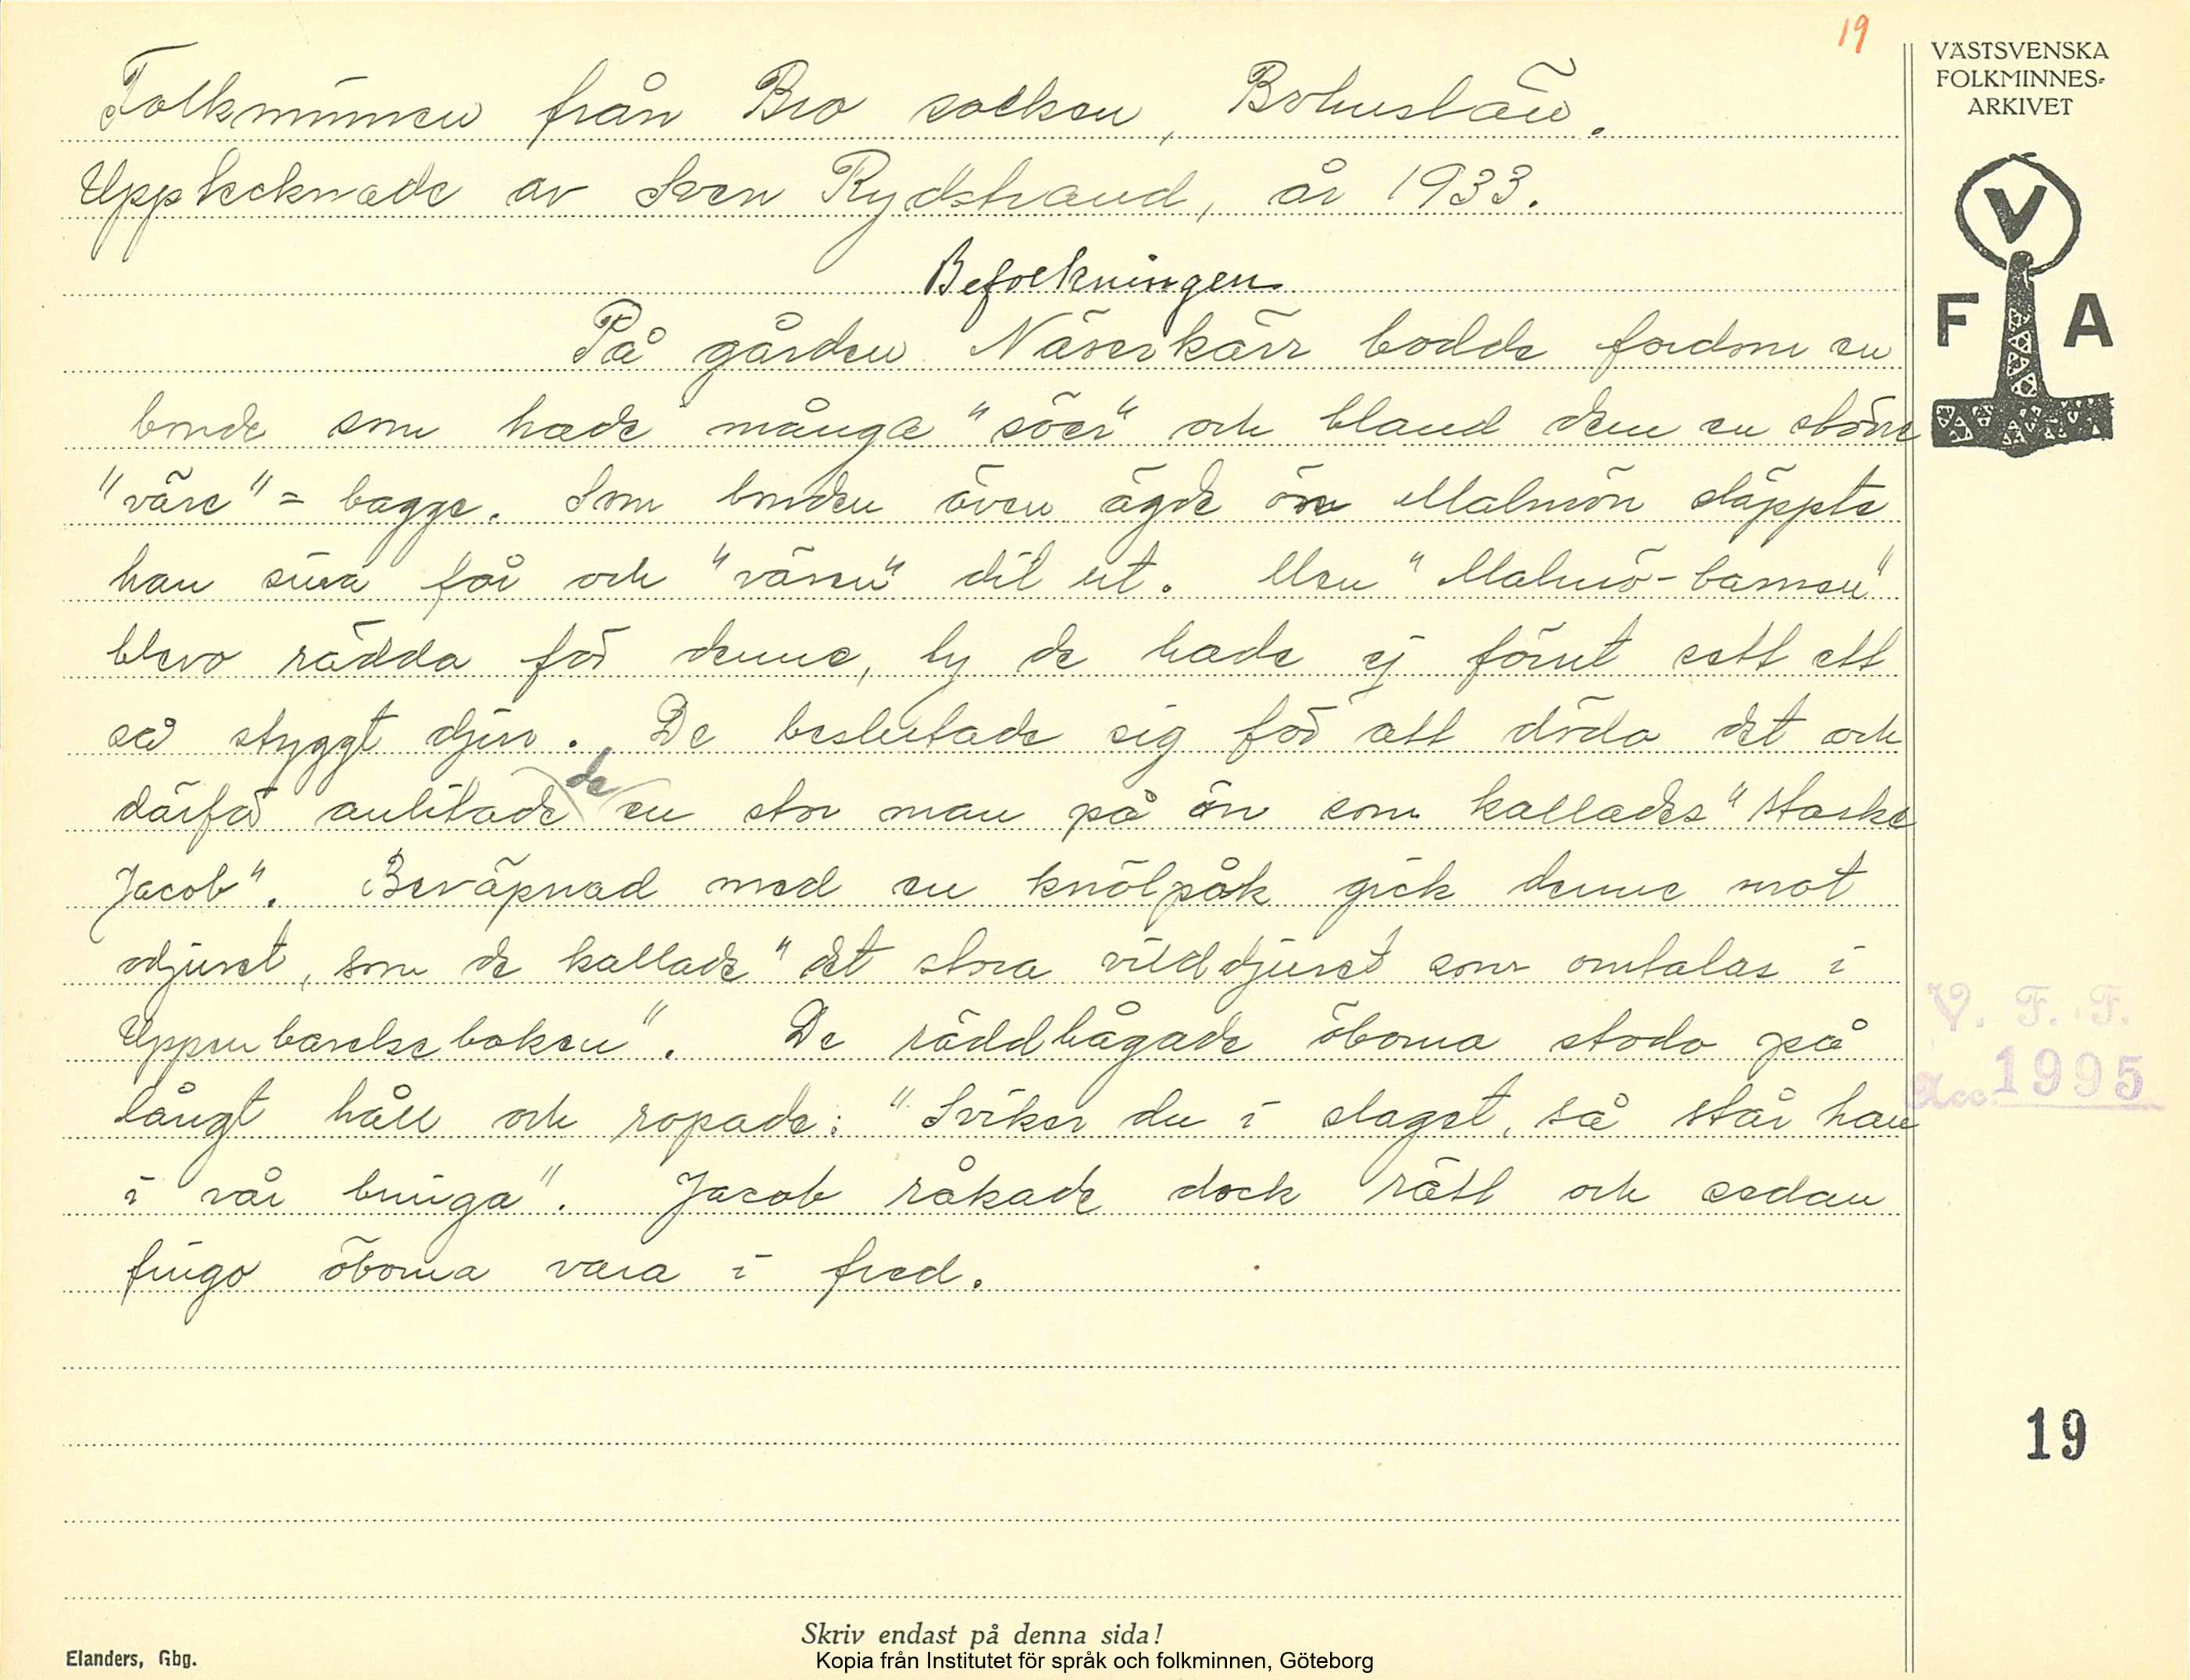 19
VÄSTSVENSKA
FOLKMINNES-
ARKIVET
V
F A
Folkminnen från Bro socken, Bohuslän.
Upptecknade av Sven Rydstrand, år 1933.
Befolkningen
På gården Näverkärr bodde fordom en
bonde som hade många "söer" och bland dem en större
"väre" = bagge. Som bonden även ägde ön Malmön släppte
han sina får och "vären" dit ut. Men "Malmö-barnsen"
blevo rädda för denne, ty de hade ej förut sett ett
så styggt djur. De beslutade sig för att döda det och
därför anlitade de en stor man på ön som kallades "Starke
Jacob". Beväpnad med en knölpåk gick denne mot
odjuret, som de kallade "det stora vilddjuret som omtalas i
Uppenbarelseboken". De räddhågade öborna stodo på
långt håll och ropade: "Sviker du i slaget, så står han
i vår bringa". Jacob råkade dock rätt och sedan
fingo öborna vara i fred.
V. F. F.
Acc. 1995
19
Skriv endast på denna sida!
Elanders, Gbg.
Kopia från Institutet för språk och folkminnen, Göteborg